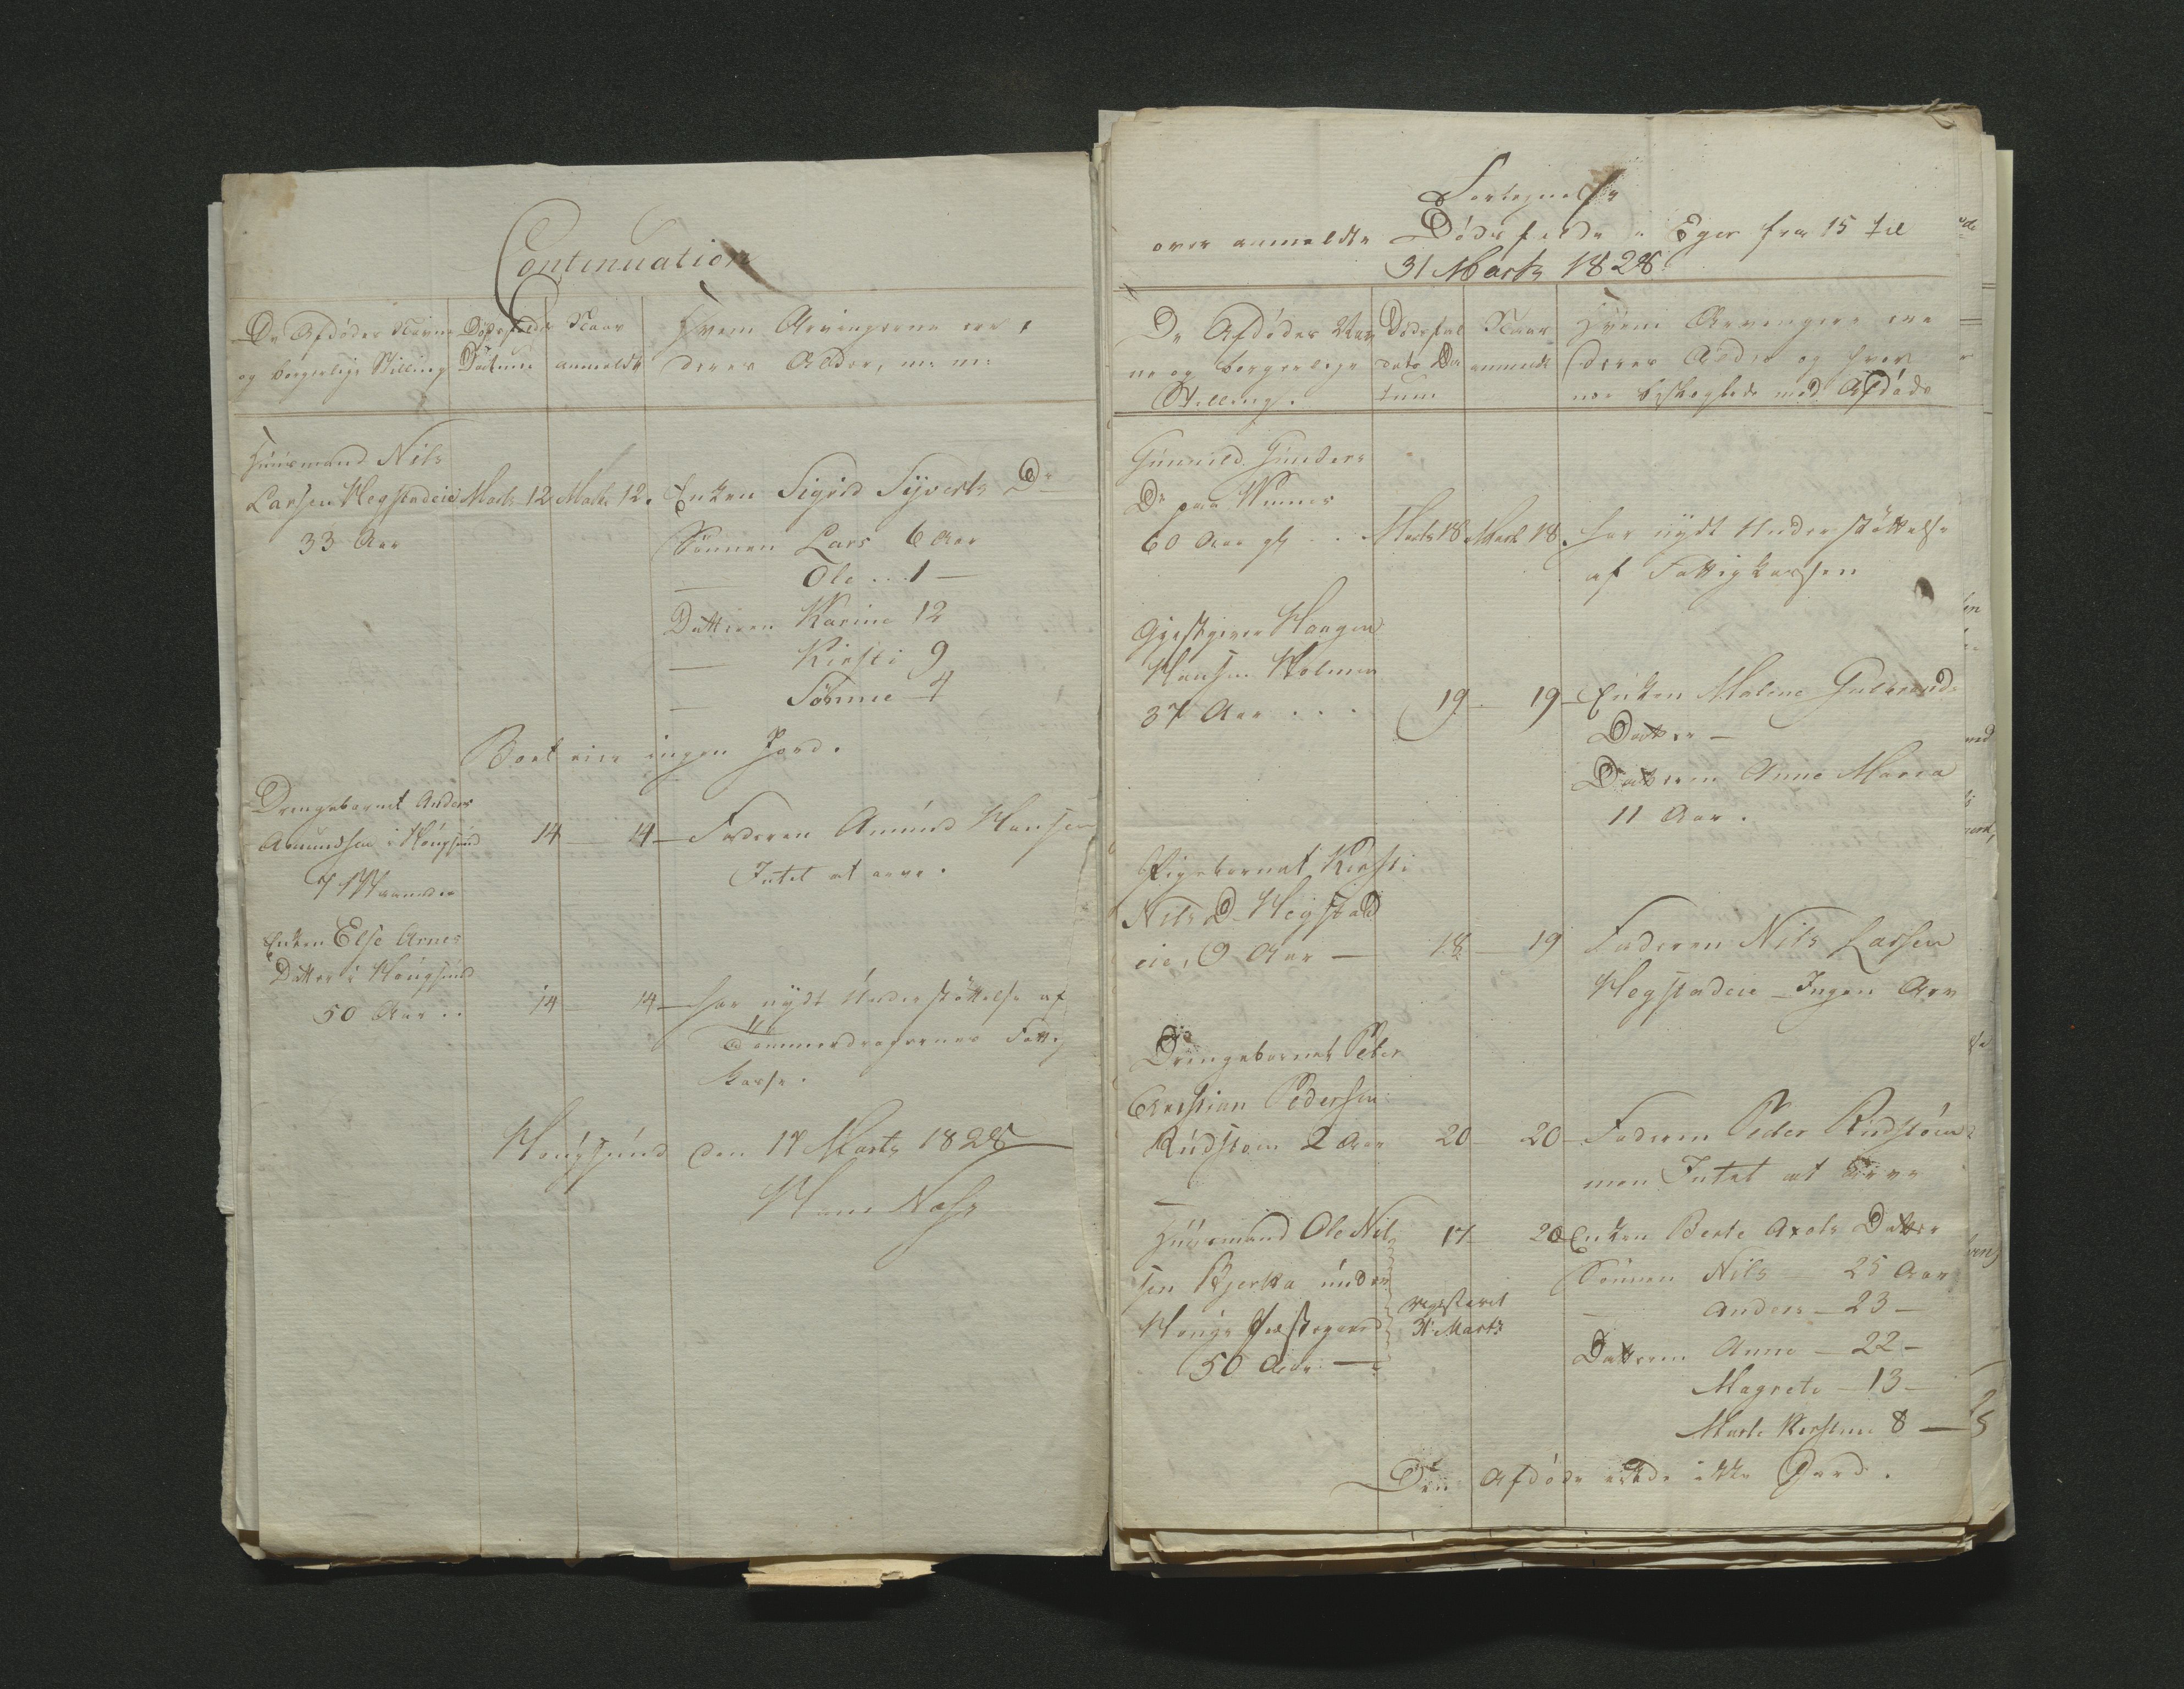 Continuation
De Afdødes Navne
og borgerlige Stilling
Dødsfaldets
Datum
Naar
anmeldt
Hvem Arvingerne ere,
deres Alder, m: m:
Huusmand Nils
Larsen Hegstadeie Marts 12 Marts 12. Enken Sigrid Syverts Dr
33 Aar
Sønnen Lars 6 Aar
— Ole ... 1 —
Datteren Karine 12
— Kirsti 9
— Sønnie 4
Boet eier ingen Jord.
Drengebarnet Anders
Amundsen i Hougsund 14 — 14 — Faderen Amund Hansen
7 Maaneder
Intet at arve.
Enken Else Arnes
Datter i Hougsund
50 Aar .. 14 — 14 — har nydt Understøttelse af
Tømmerdragernes Fattig
Kasse.
Hougsund den 17 Marts 1828
Hans Næss
Fortegnelse
over anmeldte Dødsfalde i Eger fra 15 til
31 Marts 1828
De Afdødes Nav
ne og borgerlige
Stilling.
Dødsfal
dets Da
tum
Naar
anmeldt
Hvem Arvingerne ere
deres Alder og hvor
nær beslegtede med Afdøde
Gunnild Gunders
Dr paa Vinnes
60 Aar gl .. Marts 18 Marts 18. har nydt Understøttelse
af Fattigkassen
Gjestgiver Haagen
Hansen Holmen
37 Aar ... 19 — 19 — Enken Malene Gulbrands
Datter —
Datteren Anne Maria
11 Aar.
Pigebarnet Kirsti
Nils D. Hegstad
eie, 9 Aar — 18 — 19 Faderen Nils Larsen
Hegstadeie — Ingen Arv
Drengebarnet Peter
Christian Pedersen
Rudstøen 2 Aar 20 — 20 — Faderen Peder Rudstøen
men Intet at arve
Huusmand Ole Nil
sen Bjerka under
Hougs Præstegaard
50 Aar —
17 — 20 Enken Berte Axels Datter
registeret
31 Marts
Sønnen Nils — 25 Aar
— Anders — 23 —
Datteren Anne — 22 —
Magrete — 13 —
Marte Kirstine 8 —
Den Afdøde eiede ikke Jord.